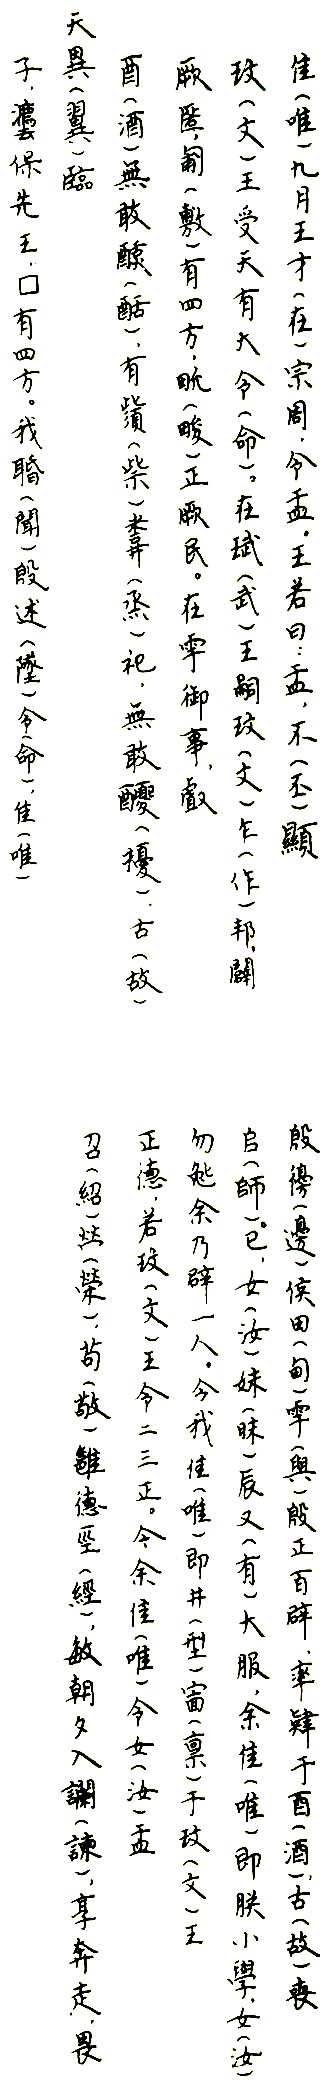 隹(唯)九月王才(在)宗周,令盂。王若曰:盂,不(丕)顯
玟(文)王受天有大令(命)。在珷(武)王嗣玟(文)乍(作)邦,闢
厥匿,匍(敷)有四方,畍(畯)正厥民。在雩御事,䖒
酉(酒)無敢酖(酣),有髭(柴)𩰬(烝)祀,無敢醻(擾),古(故)
天異(翼)臨
子,灋保先王,□有四方。我聞(聞)殷述(墜)令(命),隹(唯)
殷徬(邊)侯田(甸)雩(與)殷正百辟,率肄于酉(酒),古(故)喪
𠂤(師)。已,女(汝)妹(昧)辰又(有)大服,余隹(唯)即朕小學,女(汝)
勿𠤕余乃辟一人。今我隹(唯)即井(型)㐭(禀)于玟(文)王
正德,若玟(文)王令二三正。今余隹(唯)令女(汝)盂
召(紹)𤇾(榮),苟(敬)雝德巠(經),敏朝夕入讕(諫),享奔走,畏